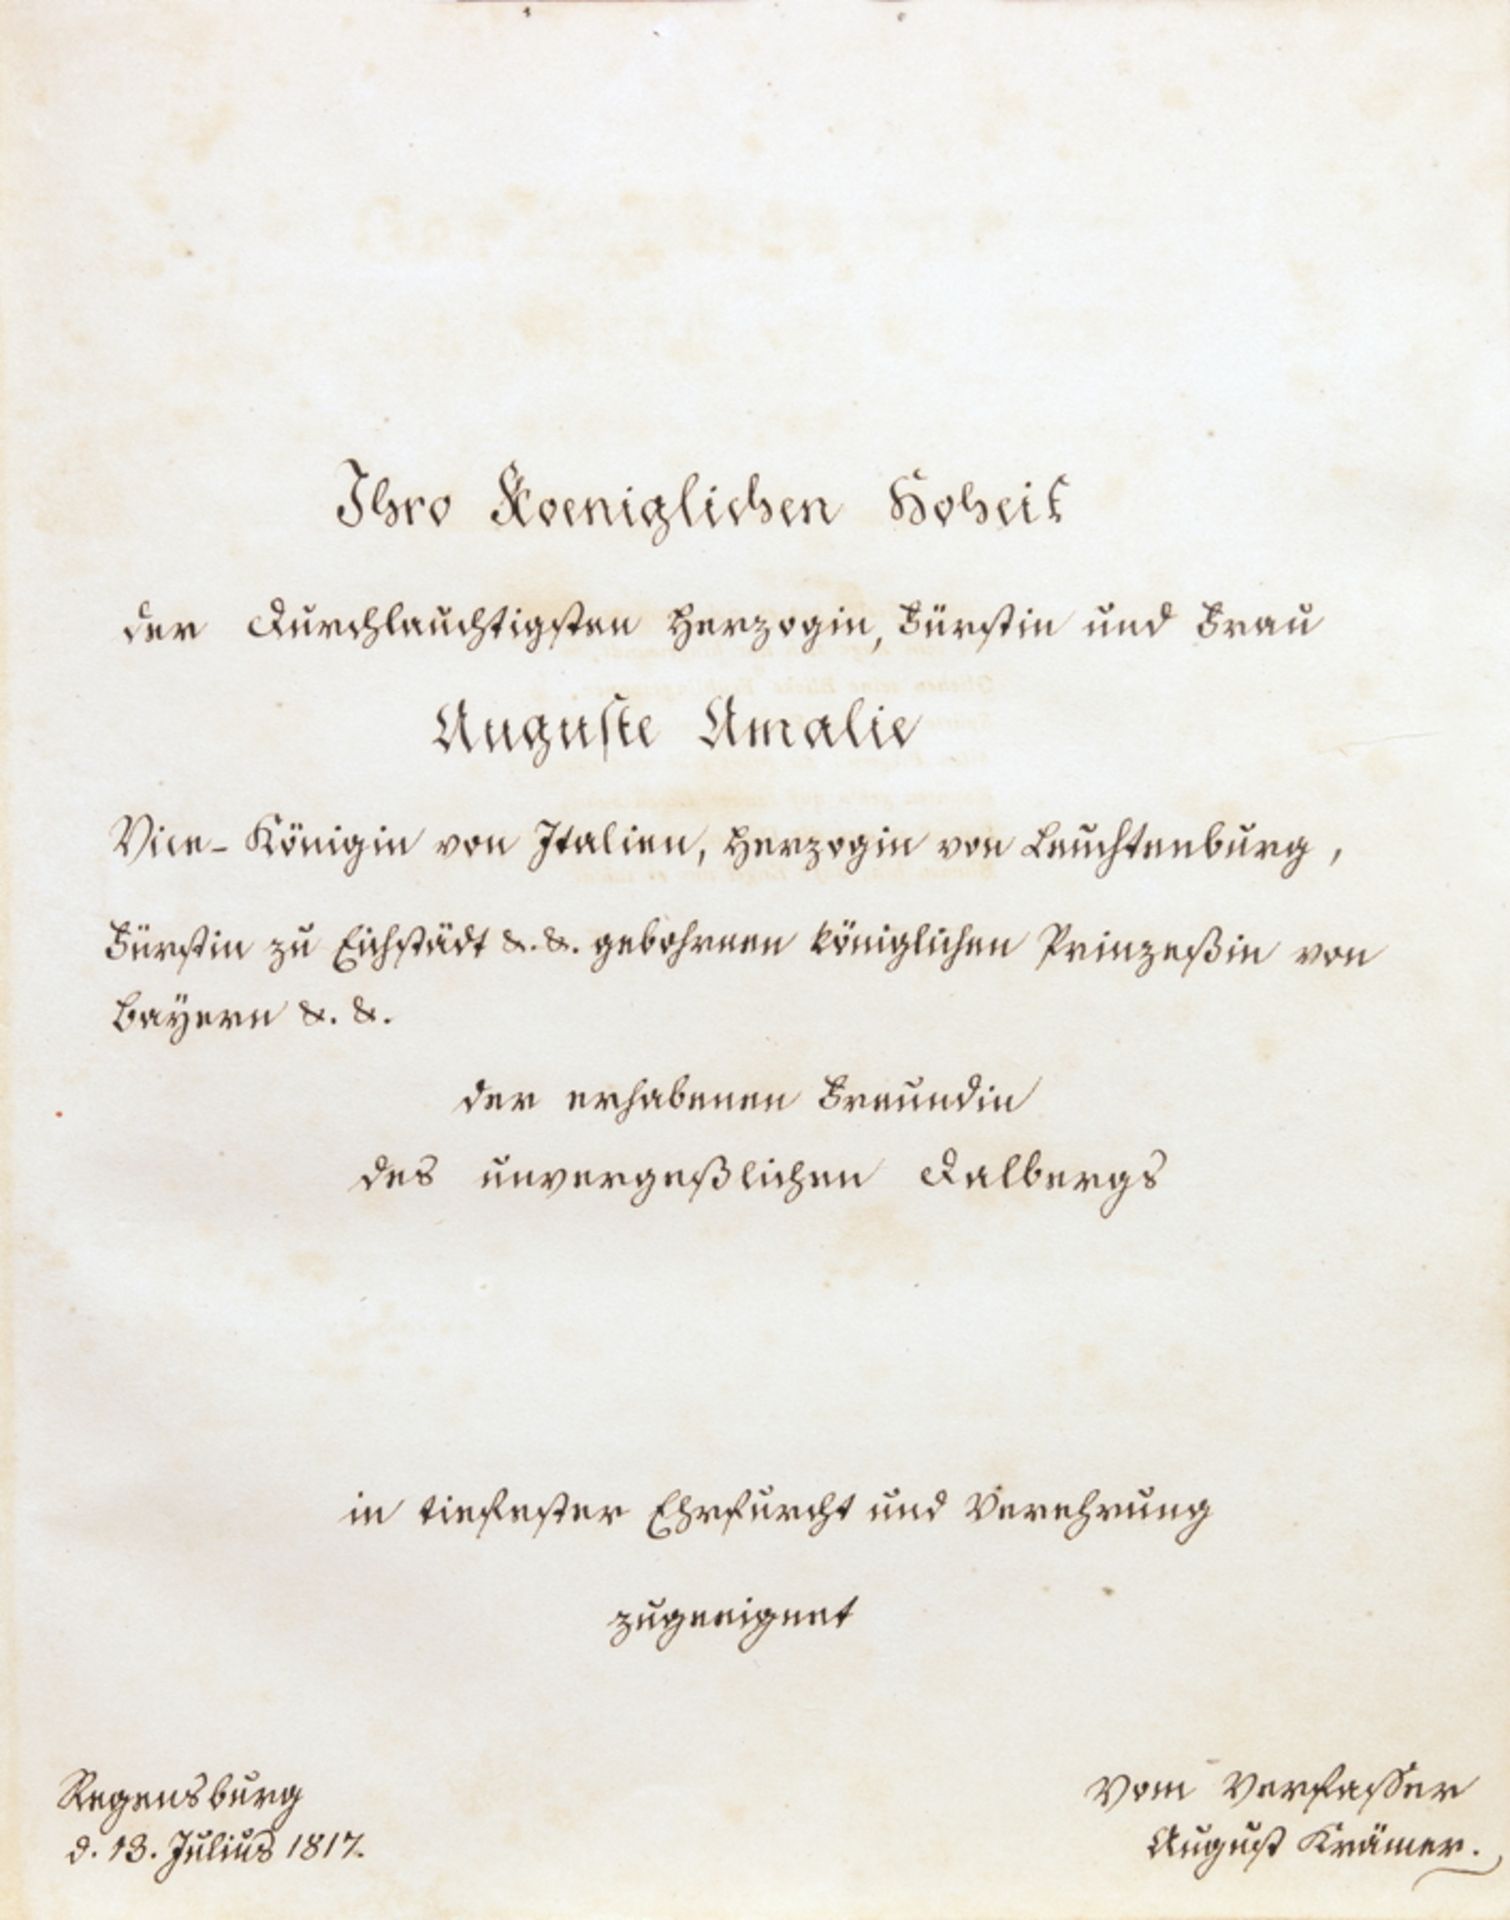 Ihro Koeniglichen Hoheit
der Durchlauchtigsten Herzogin, Fürstin und Frau
Auguste Amalie
Vice-Königin von Italien, Herzogin von Leuchtenburg,
Fürstin zu Eichstädt &. &. gebohrnen königlichen Prinzeßin von
Bayern &. &.
der erhabenen Freundin
des unvergeßlichen Dalbergs
in tiefester Ehrfurcht und Verehrung
zugeeignet
Regensburg
d. 13. Julius 1817.
Vom Verfasser
August Krämer.